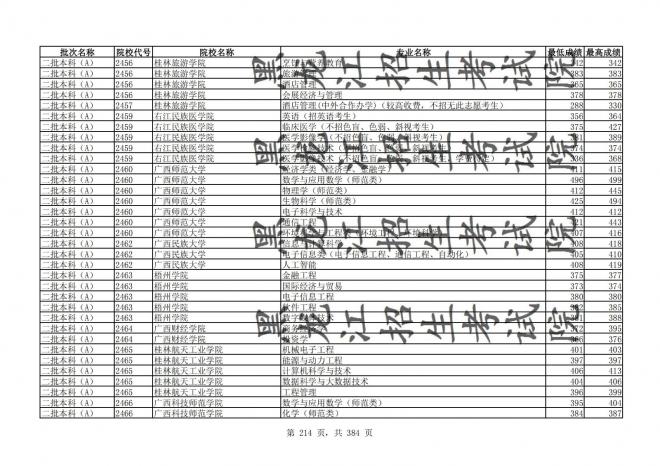 批次名称 院校代号 院校名称 专业名称 最低成绩 最高成绩
二批本科(A) 2456 桂林旅游学院 烹饪与营养教育 342 342
二批本科(A) 2456 桂林旅游学院 旅游管理 383 383
二批本科(A) 2456 桂林旅游学院 酒店管理 365 365
二批本科(A) 2456 桂林旅游学院 会展经济与管理 378 378
二批本科(A) 2457 桂林旅游学院 酒店管理(中外合作办学)(较高收费,不招无此志愿考生) 288 330
二批本科(A) 2459 右江民族医学院 英语(招英语考生) 356 364
二批本科(A) 2459 右江民族医学院 临床医学(不招色盲、色弱、斜视考生) 375 427
二批本科(A) 2459 右江民族医学院 医学影像学(不招色盲、色弱、斜视考生) 381 389
二批本科(A) 2459 右江民族医学院 医学 技术(不招色盲、色弱、斜视考生) 374 374
二批本科(A) 2459 右江民族医学院 医学影像技术(不招色盲、 斜视考生, 336 368
二批本科(A) 2460 广西师范大学 经济学类(经济学、金融学) 411 415
二批本科(A) 2460 广西师范大学 数学与应用数学(师范类) 496 499
二批本科(A) 2460 广西师范大学 物理学(师范类) 412 445
二批本科(A) 2460 广西师范大学 生物科学(师范类) 425 494
二批本科(A) 2460 广西师范大学 电子科学与技术 412 412
二批本科(A) 2460 广西师范大学 通信工程 421 443
二批本科(A) 2460 广西师范大学 环境科学与工程类(环境工程、环境科学) 407 416
二批本科(A) 2462 广西民族大学 信息与计算科学 408 418
二批本科(A) 2462 广西民族大学 电子信息类(电子信息工程、通信工程、自动化) 405 410
二批本科(A) 2462 广西民族大学 人工智能 408 419
二批本科(A) 2463 梧州学院 金融工程 375 377
二批本科(A) 2463 梧州学院 国际经济与贸易 373 374
二批本科(A) 2463 梧州学院 电子信息工程 380 380
二批本科(A) 2463 梧州学院 软件工程 385
二批本科(A) 2463 梧州学院 数字媒体技术 388
二批本科(A) 2464 广西财经学院 商务 395
二批本科(A) 2464 广西财经学院 投资学 376
二批本科(A) 2465 桂林航天工业学院 机械电子工程 401 403
二批本科(A) 2465 桂林航天工业学院 能源与动力工程 397 399
二批本科(A) 2465 桂林航天工业学院 计算机科学与技术 406 413
二批本科(A) 2465 桂林航天工业学院 数据科学与大数据技术 404 406
二批本科(A) 2465 桂林航天工业学院 工程管理 396 399
二批本科(A) 2466 广西科技师范学院 数学与应用数学(师范类) 395 404
二批本科(A) 2466 广西科技师范学院 化学(师范类) 384 387
黑龙江招生考试院
黑龙江招生考试院
黑龙江招生考试院
第 214 页,共 384 页